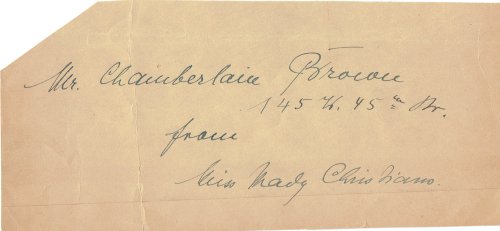 Mr. Chamberlain Brown
145 W. 45th St.
from
Miss Mady Christians.